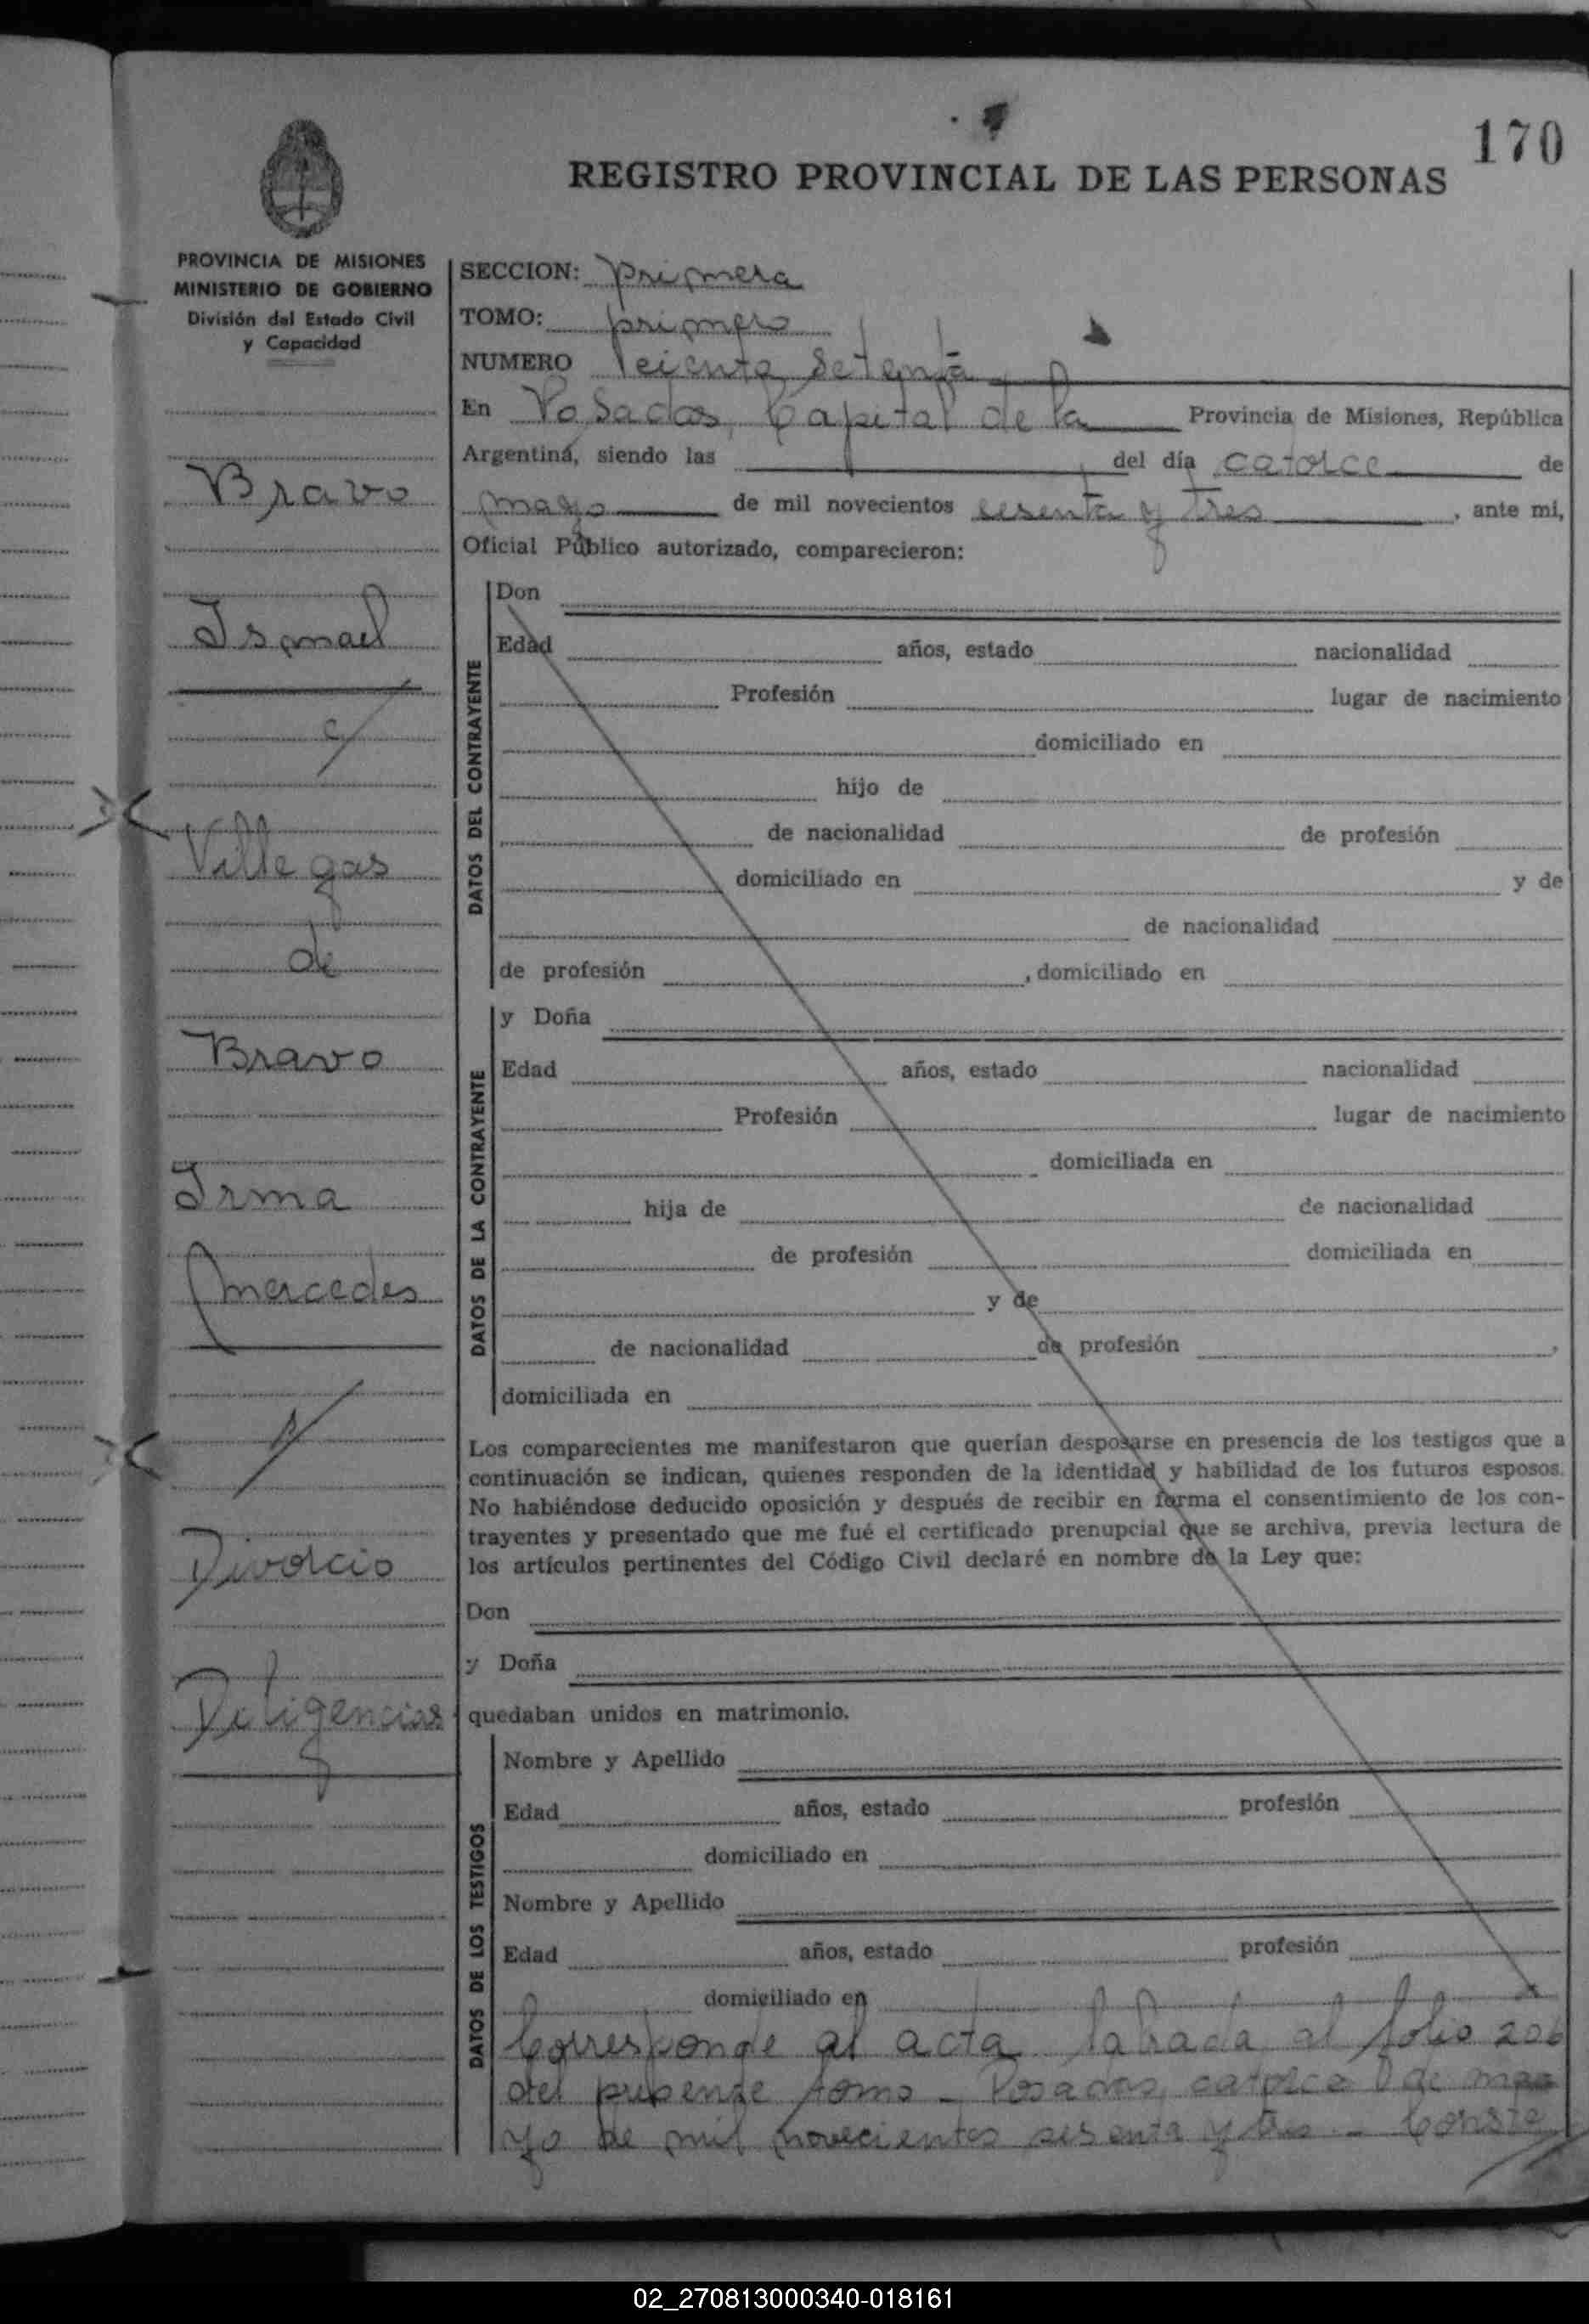 170
REGISTRO PROVINCIAL DE LAS PERSONAS
PROVINCIA DE MISIONES
MINISTERIO DE GOBIERNO
División del Estado Civil
y Capacidad
Bravo
Ismael
c/
Villegas
de
Bravo
Irma
Mercedes
s/
Divorcio
Diligencias
SECCION: primera
TOMO: primero
NUMERO setenta
En Posadas, Capital de la Provincia de Misiones, República
Argentina, siendo las del día catorce de
mayo de mil novecientos sesenta y tres , ante mi,
Oficial Público autorizado, comparecieron:
DATOS DEL CONTRAYENTE
Don
Edad años, estado nacionalidad
Profesión lugar de nacimiento
domiciliado en
hijo de
de nacionalidad de profesión
domiciliado en y de
de nacionalidad
de profesión , domiciliado en
DATOS DE LA CONTRAYENTE
y Doña
Edad años, estado nacionalidad
Profesión lugar de nacimiento
domiciliada en
hija de de nacionalidad
de profesión domiciliada en
y de
de nacionalidad de profesión ,
domiciliada en
Los comparecientes me manifestaron que querían desposarse en presencia de los testigos que a
continuación se indican, quienes responden de la identidad y habilidad de los futuros esposos.
No habiéndose deducido oposición y después de recibir en forma el consentimiento de los con-
trayentes y presentado que me fué el certificado prenupcial que se archiva, previa lectura de
los artículos pertinentes del Código Civil declaré en nombre de la Ley que:
Don
y Doña
quedaban unidos en matrimonio.
DATOS DE LOS TESTIGOS
Nombre y Apellido
Edad años, estado profesión
domiciliado en
Nombre y Apellido
Edad años, estado profesión
domiciliado en
Corresponde al acta labrada al folio 206
del presente tomo - Posadas, catorce de ma
yo de mil novecientos sesenta y tres - Conste
02_270813000340-018161